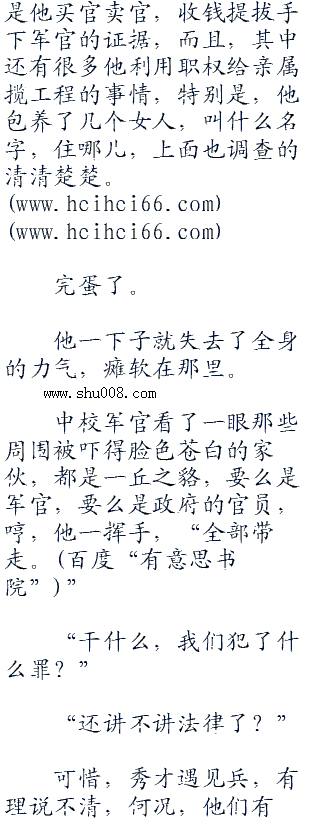 是他买官卖官，收钱提拔手
下军官的证据，而且，其中
还有很多他利用职权给亲属
揽工程的事情，特别是，他
包养了几个女人，叫什么名
字，住哪儿，上面也调查的
清清楚楚。
(www.hcihci66.com)
(www.hcihci66.com)
完蛋了。
他一下子就失去了全身
的力气，瘫软在那里。
www.shu008.com
中校军官看了一眼那些
周围被吓得脸色苍白的家
伙，都是一丘之貉，要么是
军官，要么是政府的官员，
哼，他一挥手，“全部带
走。(百度“有意思书
院”)”
“干什么，我们犯了什
么罪？”
“还讲不讲法律了？”
可惜，秀才遇见兵，有
理说不清，何况，他们有